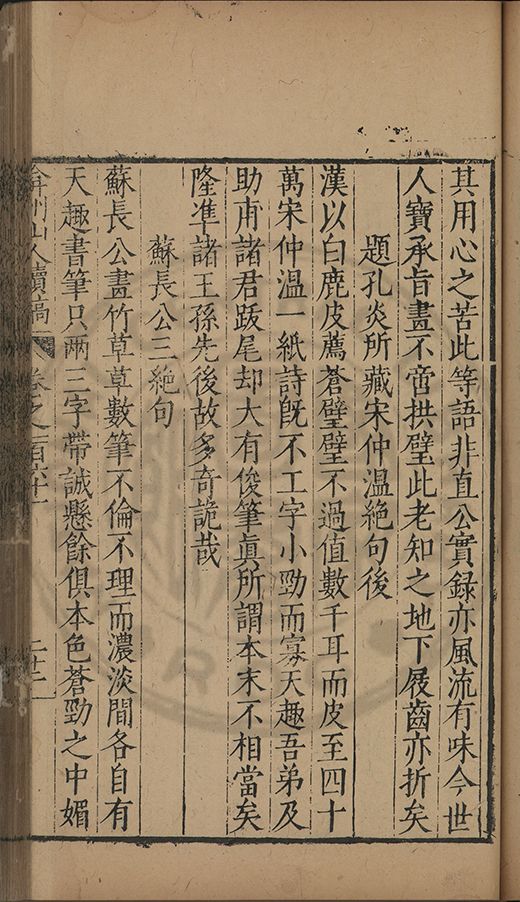 其用心之苦此等語非直公實録亦風流有味今世
人寶承旨畫不啻拱璧此老知之地下屐齒亦折矣
題孔炎所藏宋仲溫絕句後
漢以白鹿皮薦蒼璧璧不過值數千耳而皮至四十
萬宋仲溫一紙詩旣不工字小勁而寡天趣吾弟及
助甫諸君跋尾却大有俊筆眞所謂本末不相當矣
隆準諸王孫先後故多奇詭哉
蘇長公三絕句
蘇長公畫竹草草數筆不倫不理而濃淡間各自有
天趣書筆只兩三字帶誠懸餘俱本色蒼勁之中媚
弇州山人續稿 卷之一百六十一 二十二